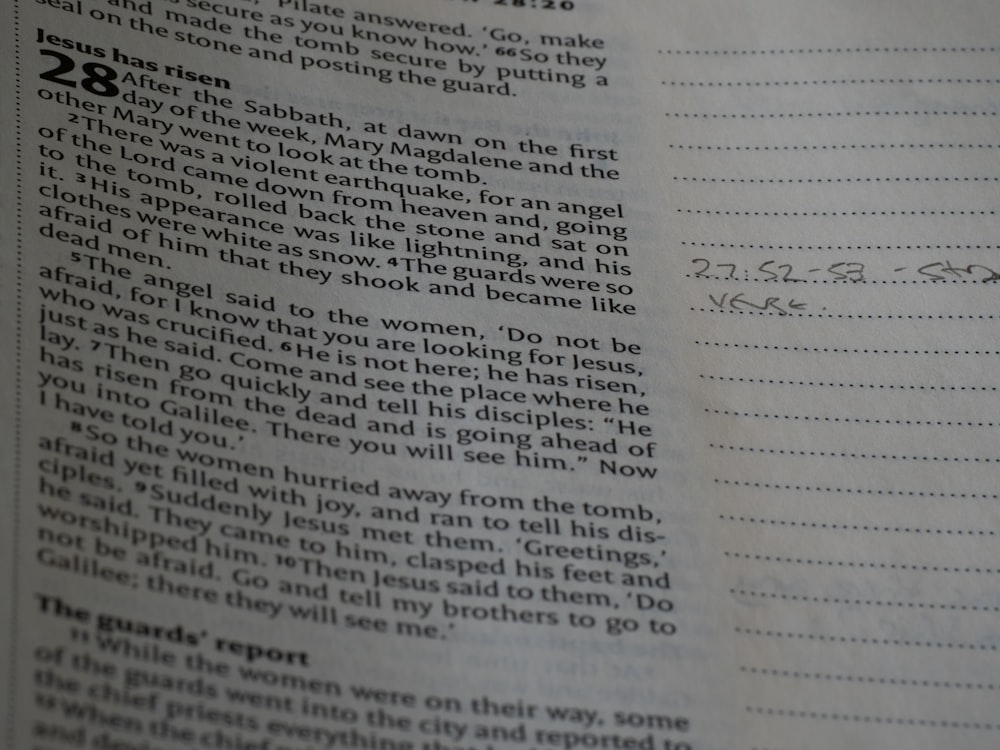 28:20
Pilate answered. 'Go, make
secure as you know how.' 66 So they
and made the tomb secure by putting a
seal on the stone and posting the guard.
Jesus has risen
28 After the Sabbath, at dawn on the first
day of the week, Mary Magdalene and the
other Mary went to look at the tomb.
2 There was a violent earthquake, for an angel
of the Lord came down from heaven and, going
to the tomb, rolled back the stone and sat on
it. 3 His appearance was like lightning, and his
clothes were white as snow. 4 The guards were so
afraid of him that they shook and became like
dead men.
5 The angel said to the women, 'Do not be
afraid, for I know that you are looking for Jesus,
who was crucified. 6 He is not here; he has risen,
just as he said. Come and see the place where he
lay. 7 Then go quickly and tell his disciples: "He
has risen from the dead and is going ahead of
you into Galilee. There you will see him." Now
I have told you.'
8 So the women hurried away from the tomb,
afraid yet filled with joy, and ran to tell his dis-
ciples. 9 Suddenly Jesus met them. 'Greetings,'
he said. They came to him, clasped his feet and
worshipped him. 10 Then Jesus said to them, 'Do
not be afraid. Go and tell my brothers to go to
Galilee; there they will see me.'
The guards' report
11 While the women were on their way, some
of the guards went into the city and reported to
the chief priests everything that
When the chief
and
27:52-53 -
VERSE.